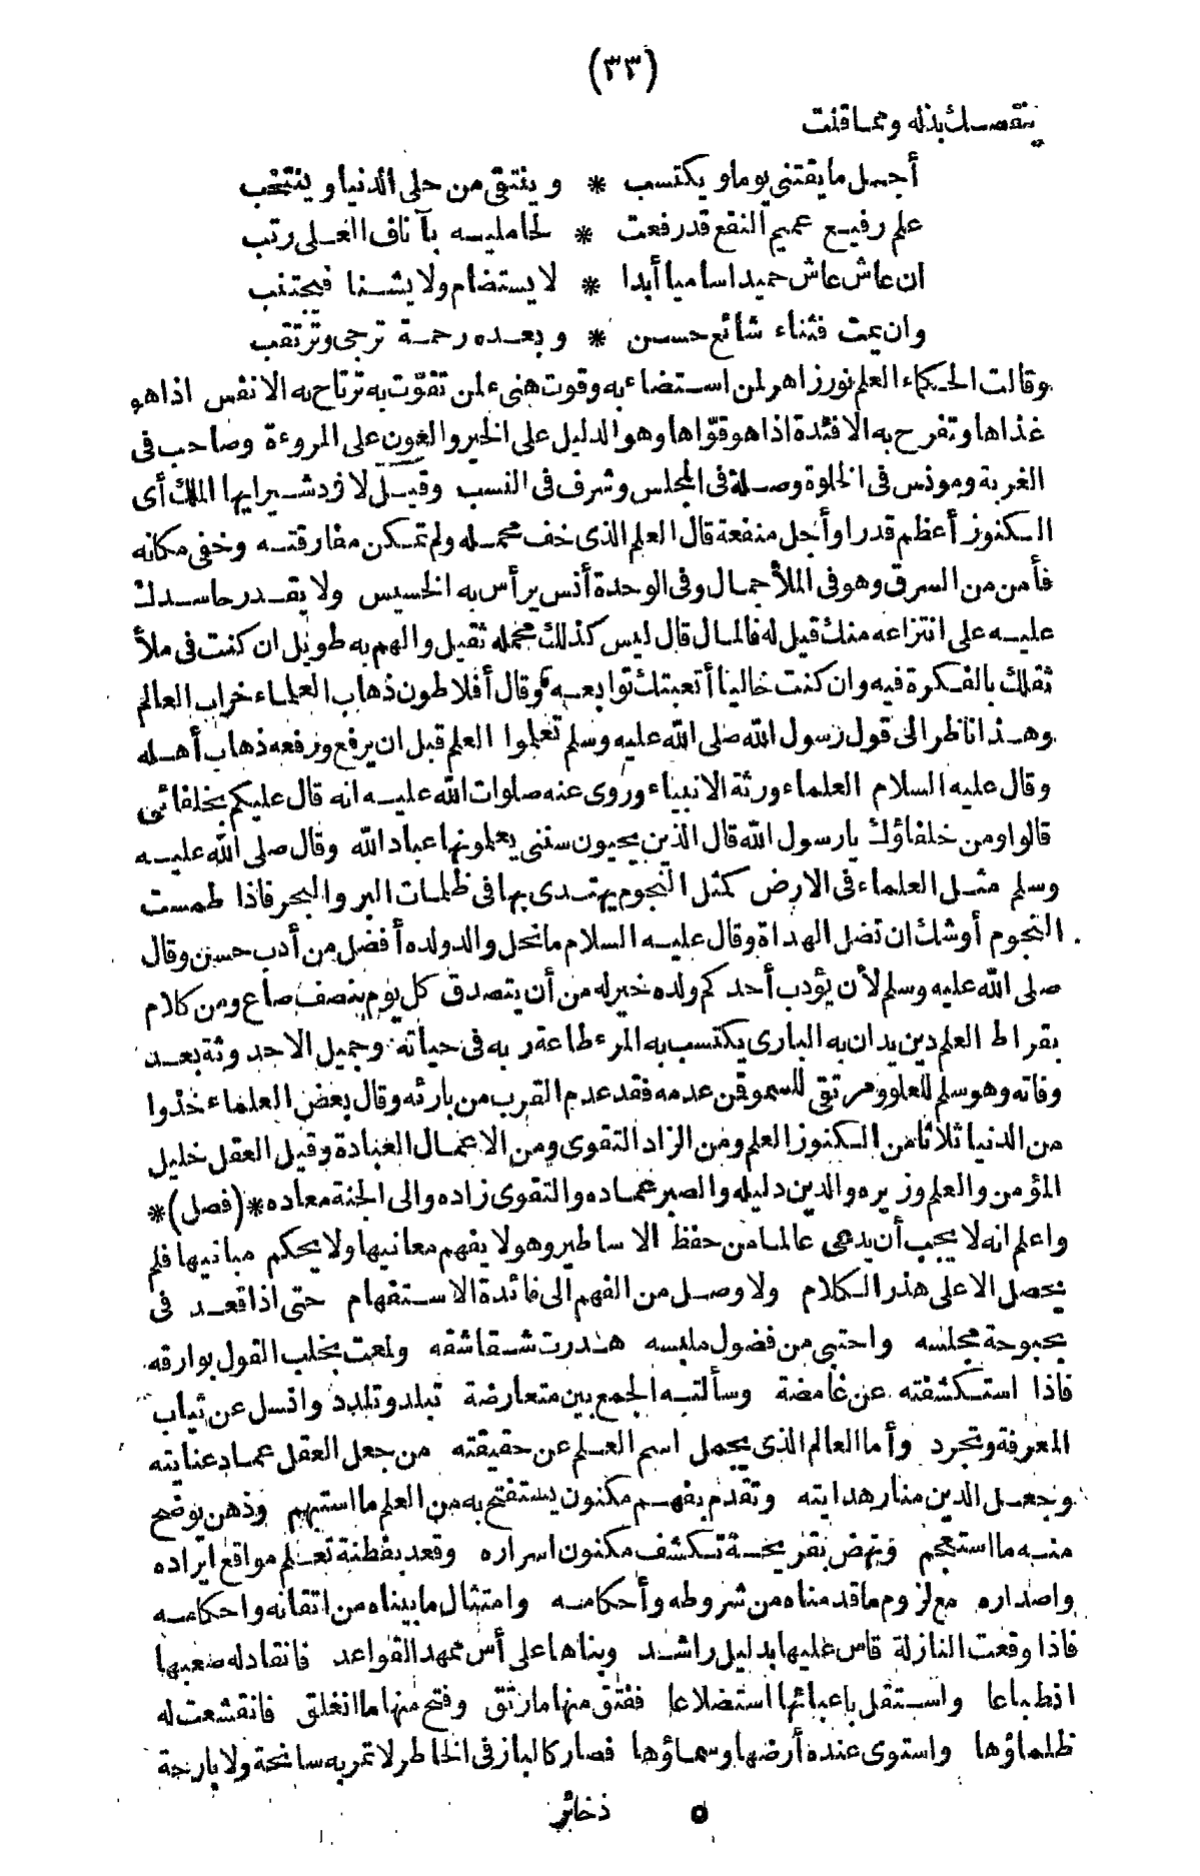 (٣٣)
ينقصك بذله ومما قلت
أجمل ما يقتنى يوما ويكتسب * وينتقى من حلى الدنيا وينتخب
علم رفيع عميم النفع قد رفعت * لحامليه بآناف العلى رتب
ان عاش عاش حميدا ساميا أبدا * لا يستضام ولا يشنا فيجتنب
وان يمت فثناء شائع حسن * وبعده رحمة ترجى وترتقب
وقالت الحكماء العلم نور زاهر لمن استضاء به وقوت هنىء لمن تقوّت به ترتاح به الانفس اذا هو
غذاها وتفرح به الافئدة اذا هو قوّاها وهو الدليل على الخير والعون على المروءة وصاحب فى
الغربة ومونس فى الخلوة وصلة فى المجلس وشرف فى النسب وقيل لازدشير ايها الملك أى
الكنوز أعظم قدرا وأجل منفعة قال العلم الذى خف محمله ولم تمكن مفارقته وخفى مكانه
فأمن من السرق وهو فى الملأ جمال وفى الوحدة أنس يرأس به الخسيس ولا يقدر حاسدك
عليه على انتزاعه منك قيل له فالمال قال ليس كذلك محمله ثقيل والهم به طويل ان كنت فى ملأ
ثقلك بالفكرة فيه وان كنت خاليا أتعبتك توابعه وقال أفلاطون ذهاب العلماء خراب العالم
وهذا ناظر الى قول رسول الله صلى الله عليه وسلم تعلموا العلم قبل ان يرفع ورفعه ذهاب أهله
وقال عليه السلام العلماء ورثة الانبياء وروى عنه صلوات الله عليه انه قال عليكم بخلفائى
قالوا ومن خلفاؤك يا رسول الله قال الذين يحيون سنتى يعلمونها عباد الله وقال صلى الله عليه
وسلم مثل العلماء فى الارض كمثل النجوم يهتدى بها فى ظلمات البر والبحر فاذا طمست
النجوم أوشك ان تضل الهداة وقال عليه السلام ما نحل والد ولده أفضل من أدب حسن وقال
صلى الله عليه وسلم لأن يؤدب أحدكم ولده خير له من أن يتصدق كل يوم بنصف صاع ومن كلام
بقراط العلم دين يدان به البارى يكتسب به المرء طاعة ربه فى حياته وجميل الاحدوثة بعد
وفاته وهو سلم للعلو ومرتقى للسمو فمن عدمه فقد عدم القرب من بارئه وقال بعض العلماء خذوا
من الدنيا ثلاثا من الكنوز العلم ومن الزاد التقوى ومن الاعمال العبادة وقيل العقل خليل
المؤمن والعلم وزيره والدين دليله والصبر عماده والتقوى زاده والى الجنة معاده * (فصل) *
واعلم انه لا يجب أن يدعى عالما من حفظ الاساطير وهو لا يفهم معانيها ولا يحكم مبانيها فلم
يحصل الا على هذر الكلام ولا وصل من الفهم الى فائدة الاستفهام حتى اذا قعد فى
بحبوحة مجلسه واحتبى من فضول ملبسه هدرت شقاشقه ولمعت بخلب القول بوارقه
فاذا استكشفته عن غامضة وسألته الجمع بين متعارضة تبلد وتلدد وانسل عن ثياب
المعرفة وتجرد وأما العالم الذى يحمل اسم العلم عن حقيقته من جعل العقل عماد عنايته
وجعل الدين منار هدايته وتقدم بفهم مكنون يستفتح به من العلم ما استبهم وذهن يوضح
منه ما استعجم ونهض بقريحة تكشف مكنون اسراره وقعد بفطنة تعلم مواقع ايراده
واصداره مع لزوم ما قدمناه من شروطه وأحكامه وامتثال ما بيناه من اتقانه واحكامه
فاذا وقعت النازلة قاس عليها بدليل راشد وبناها على أس ممهد القواعد فانقاد له صعبها
انطباعا واستقل باعبائها استضلاعا ففتق منها ما رتق وفتح منها ما انغلق فانقشعت له
ظلماؤها واستوى عنده أرضها وسماؤها فصار كالباز فى الخاطر لا تمر به سانحة ولا بارحة
٥ ذخائر